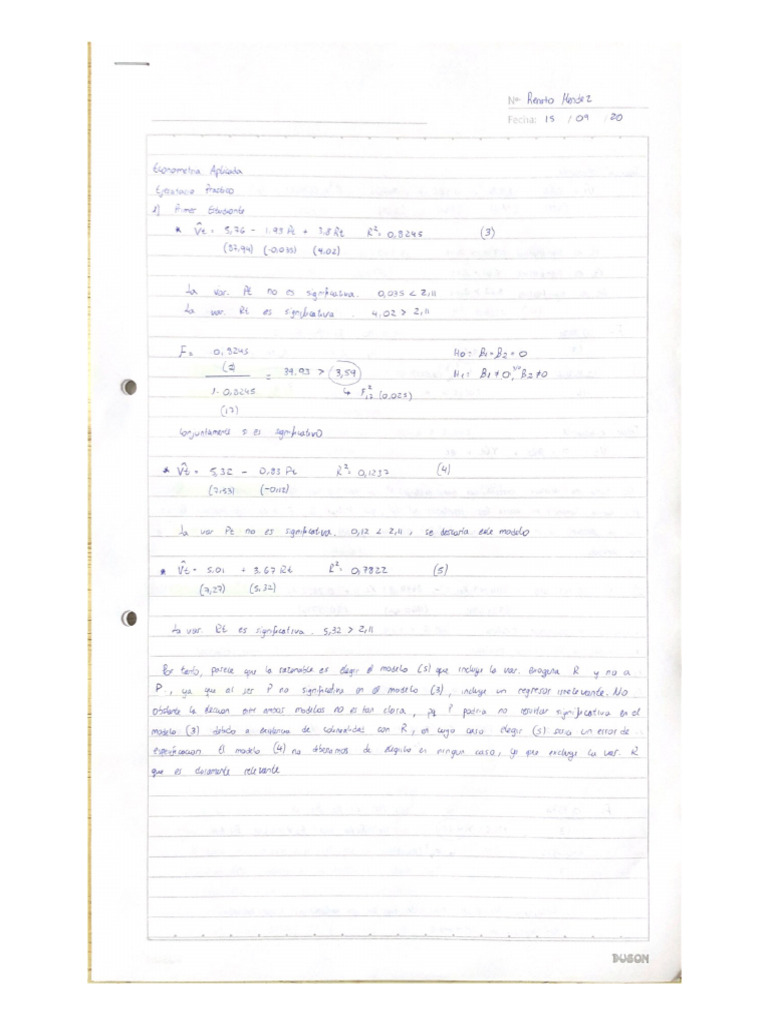 Nª Renato Mendez
Fecha: 15 / 09 / 20
Econometria Aplicada
Ejercicio Practico
1) Primer Estudiante
* V̂t = 5,76 - 1.93 Pt + 3,8 Rt R²= 0,8245 (3)
(37,94) (-0.035) (4.02)
La var. Pt no es significativa. 0,035 < 2,11
La var. Rt es significativa. 4,02 > 2,11
F = 0,8245
(2) = 39,93 > 3,59
1 - 0,8245 ↳ F²17 (0,025)
(17)
H0: B1 = B2 = 0
H1: B1 ≠ 0, y/o B2 ≠ 0
Conjuntamente si es significativo
* V̂t = 5,32 - 0,83 Pt R²= 0,1232 (4)
(7,53) (-0,12)
La var Pt no es significativa. 0,12 < 2,11, se descarta este modelo
* V̂t = 5.01 + 3.67 Rt R²= 0,7822 (5)
(7,27) (5,32)
La var. Rt es significativa. 5,32 > 2,11
Por tanto, parece que lo razonable es elegir el modelo (5) que incluye la var. exogena R y no a
P, ya que al ser P no significativa en el modelo (3), incluye un regresor irrelevante. No
obstante la decision entre ambos modelos no es tan clara, pq P podria no resultar significativa en el
modelo (3) debido a existencia de colinealidad con R, en cuyo caso elegir (5) seria un error de
especificacion. El modelo (4) no debemos de elegirlo en ningun caso, ya que excluye la var. R
que es claramente relevante
DUGON